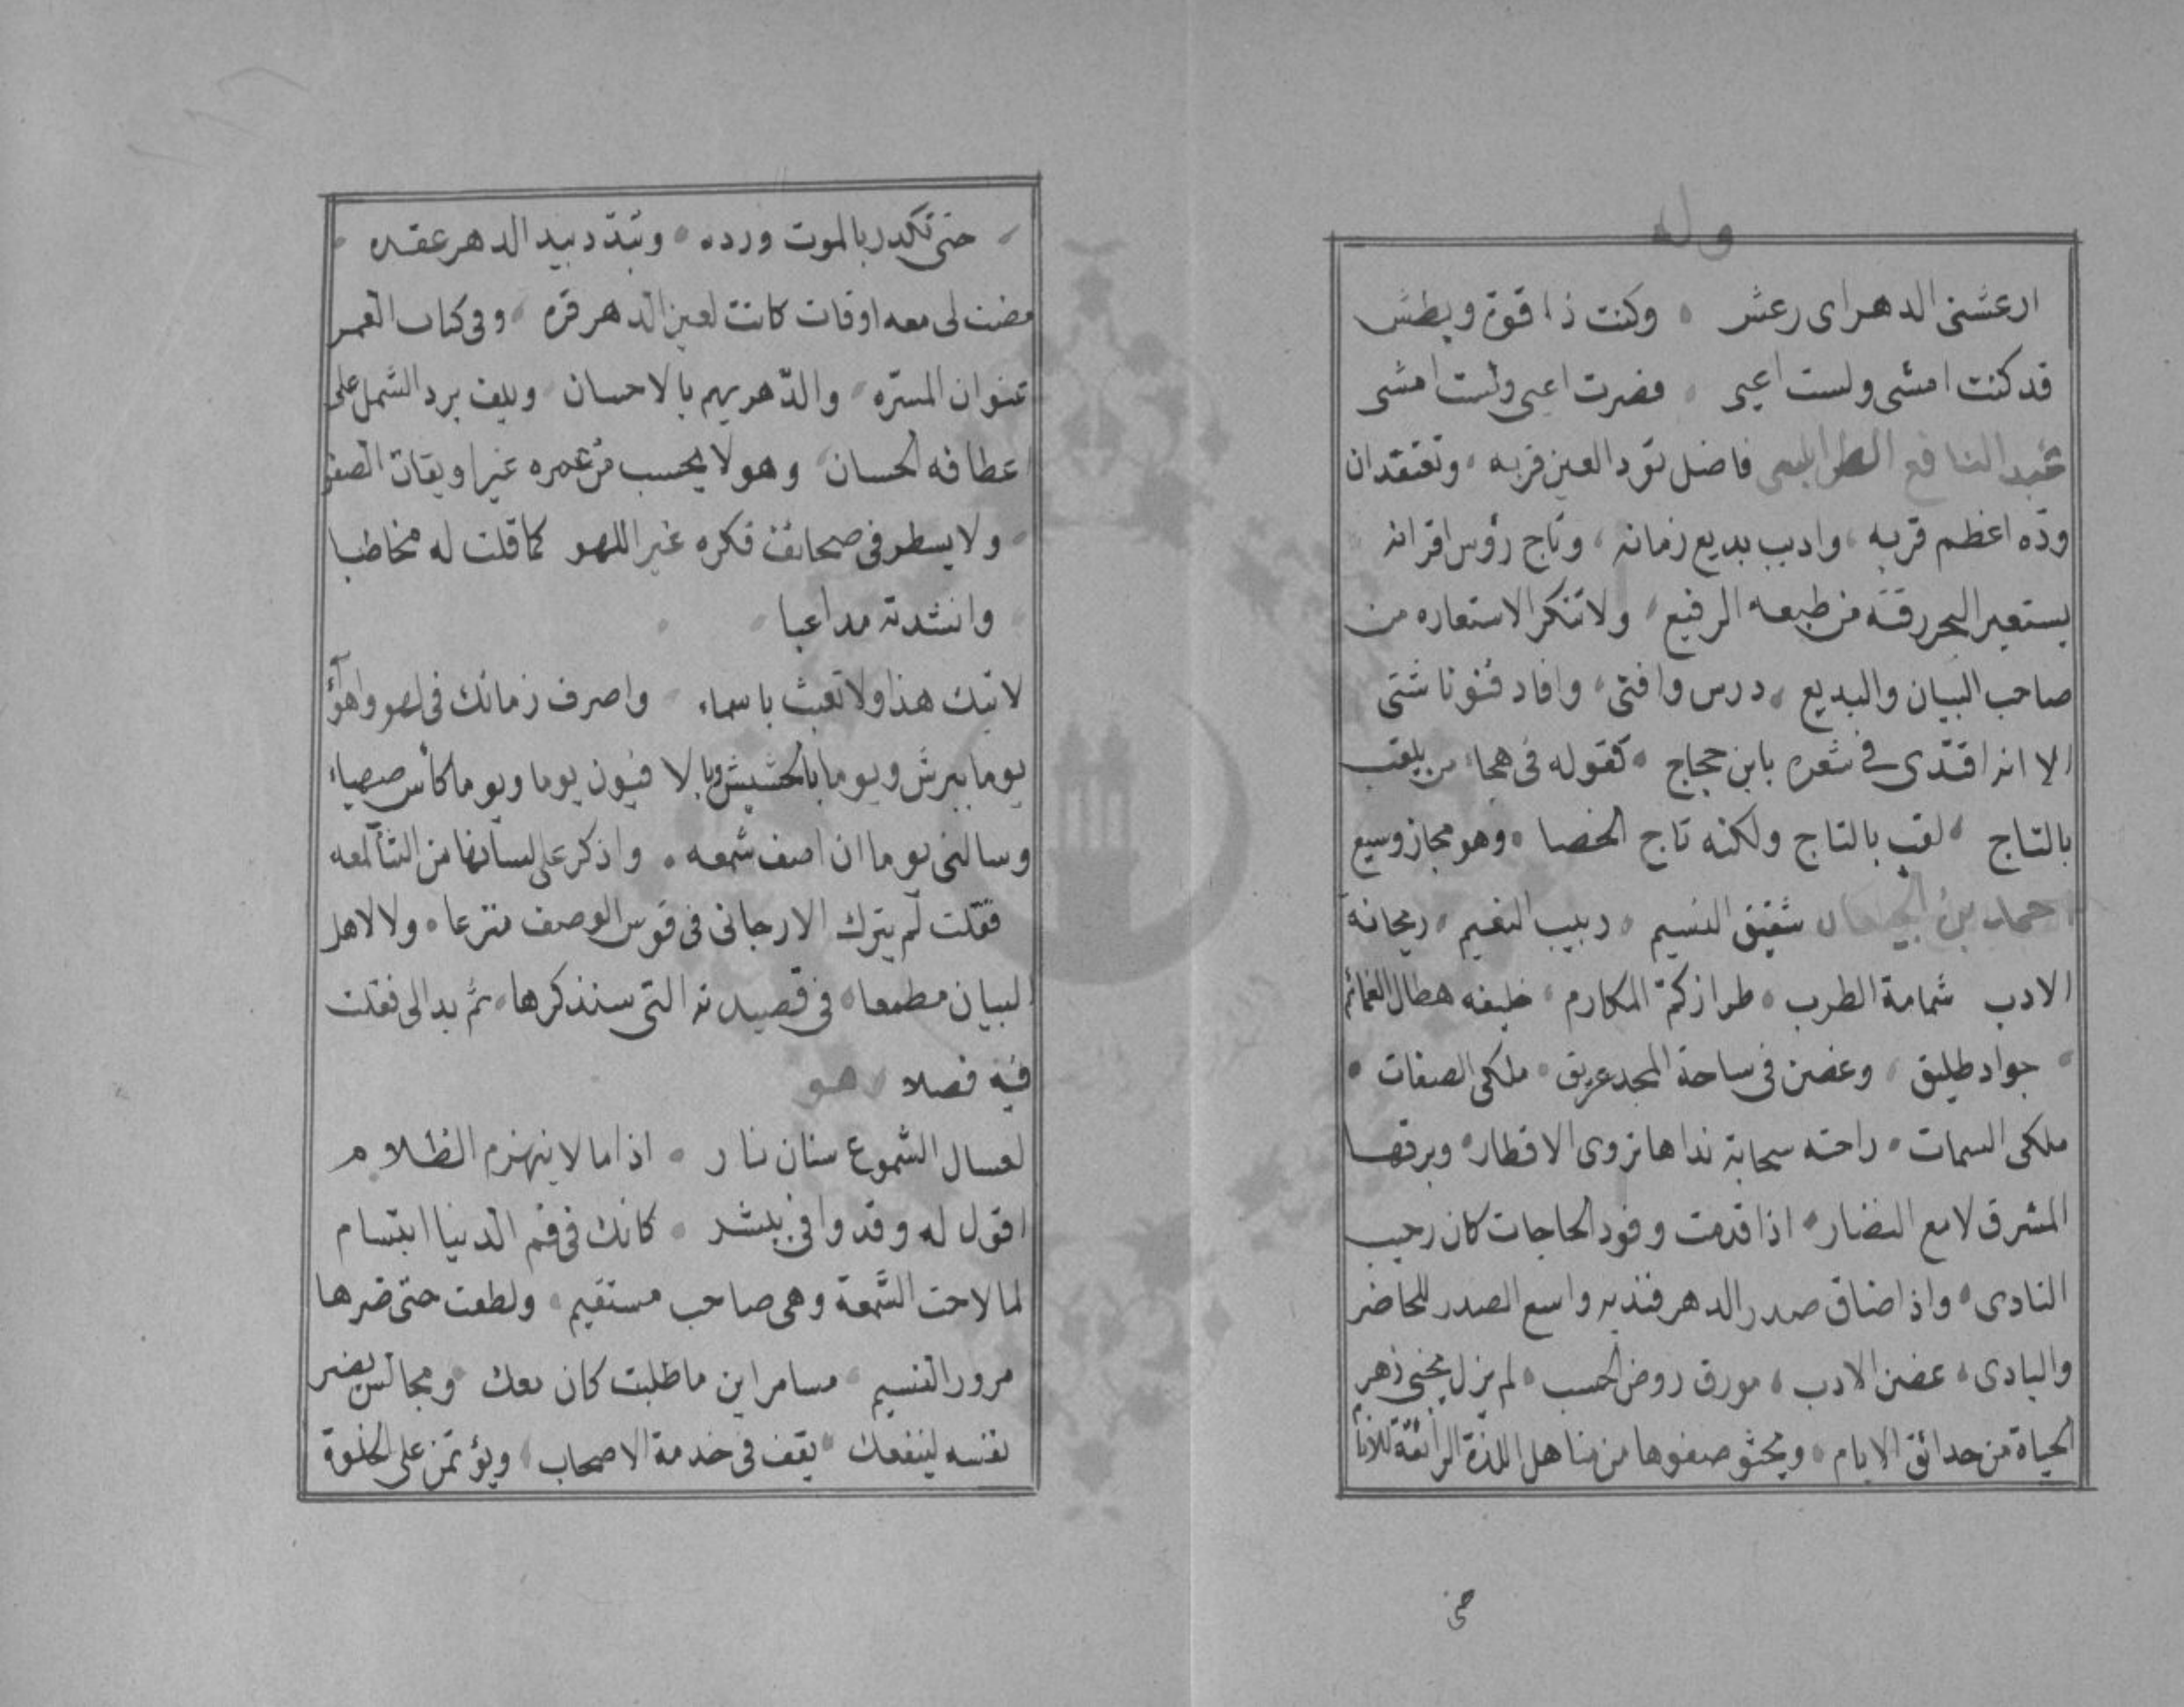 وله
ارعشنى الدهر اى رعش وكنت ذا قوة وبطش
قد كنت امشى ولست اعيى فصرت اعيى ولست امشى
عبد النافع الطرابلسى فاضل تود العين قربه وتعتقد ان
وده اعظم قربه وادیب بديع زمانه وتاج رؤس اقرانه
يستعير البحر رقته من طبعه الرفيع ولا تنكر الاستعاره من
صاحب البيان والبديع درس وافتى وافاد فنونا شتى
الا انه اقتدى فى شعره بابن حجاج كقوله فى هجا من يلقب
بالتاج لقب بالتاج ولكنه تاج الخصا وهو مجاز وسيع
احمد بن الجيعان شقيق النسيم ربيب النعيم ريحانة
الادب شمامة الطرب طراز كم المكارم خليفه هطال الغمائم
جواد طليق وغصن فى ساحة المجد عريق ملكى الصفات
ملكى السمات راحته سحابة نداها تروى الاقطار وبرقها
المشرق لامع النضار اذا قدمت وفود الحاجات كان رحيب
النادى واذا ضاق صدر الدهر فنديه واسع الصدر للحاضر
والبادى غصن الادب مورق روض الحسب لم يزل يجنى زهر
الحياة من حدائق الايام ويحثو صفوها من مناهل اللذة الرائقة للانام
حتى
حتى تكدر بالموت ورده وتبدد بيد الدهر عقده
مضت لى معه اوقات كانت لعين الدهر قره وفى كتاب العمر
عنوان المسره والدهر يهم بالاحسان ويلف برد الشمل على
عطافه الحسان وهو لا يحسب من عمره غير اويقات الصفو
ولا يسطر فى صحائف فكره غير اللهو كما قلت له مخاطبا
وانشدته مداعبا
لا تبك هندا ولا تعبث باسماء واصرف زمانك فى لهو واهوآء
يوما ببرش ويوما بالحشيش وبالافيون يوما ويوما كأس صهباء
وسالنى يوما ان اصف شمعه واذكر على لسانها من الثنا لمعه
فقلت لم يترك الارجانى فى قوس الوصف منزعا ولا لاهل
البيان مطمعا فى قصيدته التى سنذكرها ثم بدا لى فقلت
فيه فصلا وهو
لعسال الشموع سنان نار اذا ما لا ينهزم الظلام
اقول له وقد وافى ببشر كانك فى فم الدنيا ابتسام
لما لاحت الشمعة وهى صاحب مستقيم ولطفت حتى ضرها
مرور النسيم مسامر اين ما طلبت كان معك ومجالس يضر
نفسه لينفعك يقف فى خدمة الاصحاب ويؤتمن على الخلوة